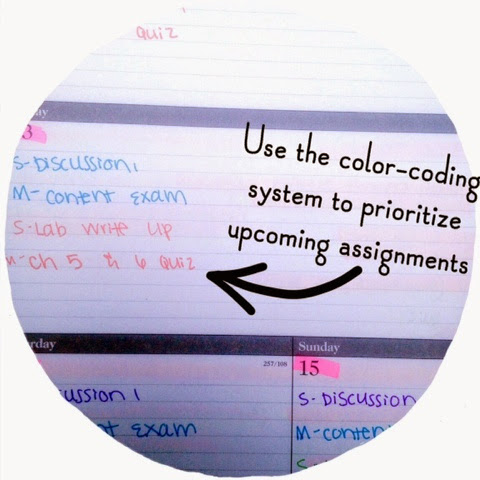 quiz
day
3
S-Discussion 1
M-content exam
S-Lab write up
M-ch 5 & 6 quiz
Use the color-coding
system to prioritize
upcoming assignments
rday
257/108
Sunday
15
cussion 1
tent exam
S-Discussion
M-conten
S